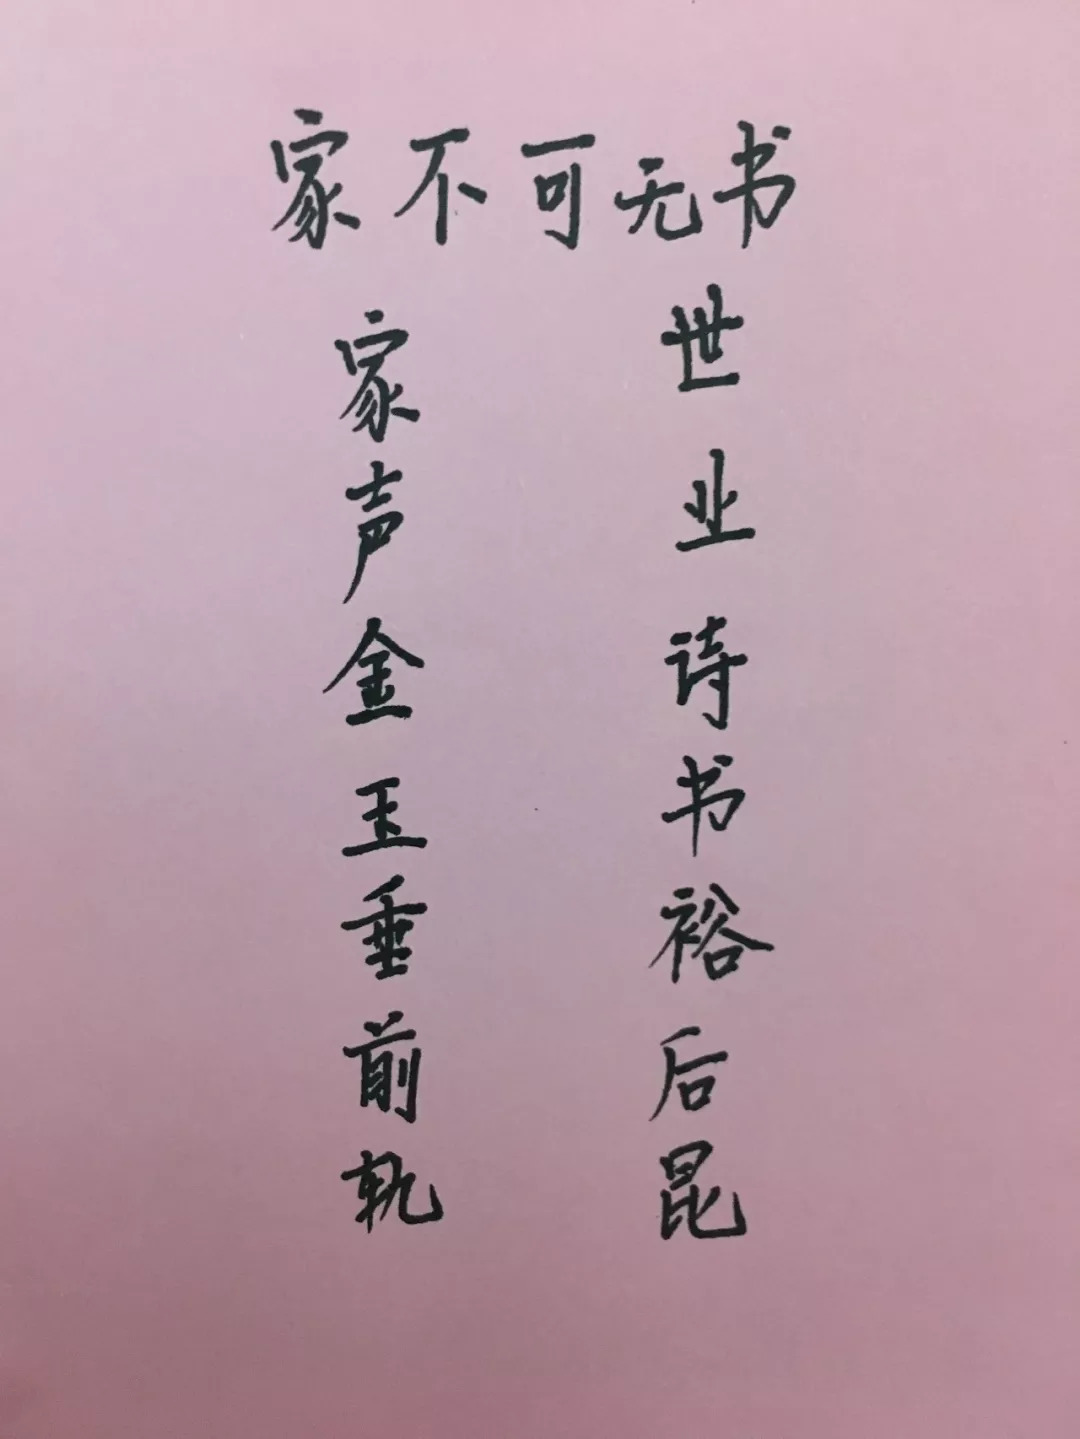 家不可无书
世业诗书裕后昆
家声金玉垂前轨